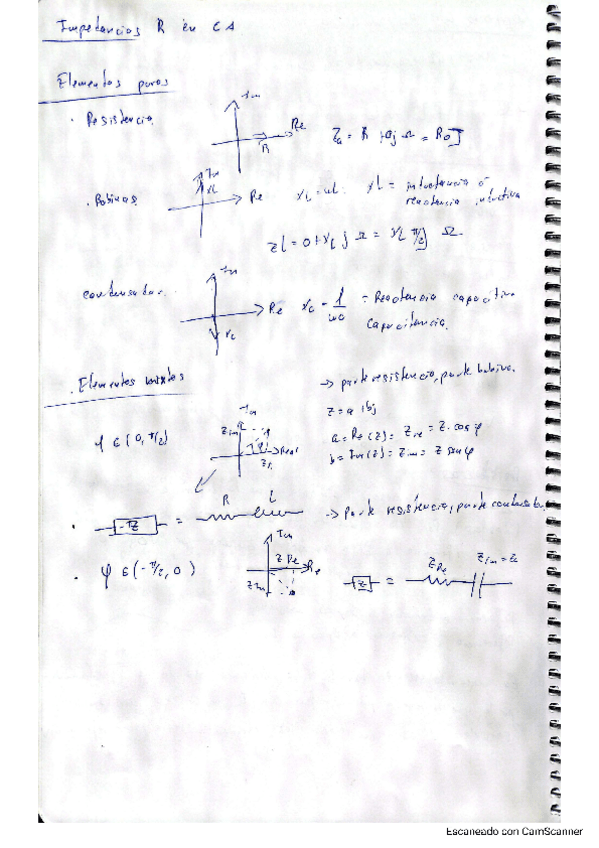 Impedancias R en CA
Elementos puros
· Resistencia
Im
Re
R
= R + 0j Ω = R 0
· Bobinas
Im
XL
Re
XL = ωL
XL = inductancia o
reactancia inductiva
ZL = 0 + XL j Ω = XL π/2 Ω
condensador
Im
Re
Xc
Xc = 1/ωC
= Reactancia capacitiva
Capacitancia.
· Elementos mixtos
-> parte resistencia, parte bobina.
Z = a + bj
φ ∈ (0, π/2)
Im
Zim
Real
a = Re(Z) = Zre = Z · cos φ
b = Im(Z) = Zim = Z sen φ
· Z = R L
-> Parte resistencia, parte condensador.
· φ ∈ (-π/2, 0)
Im
Z Re
Re
Zim
Z = ZRe
Escaneado con CamScanner